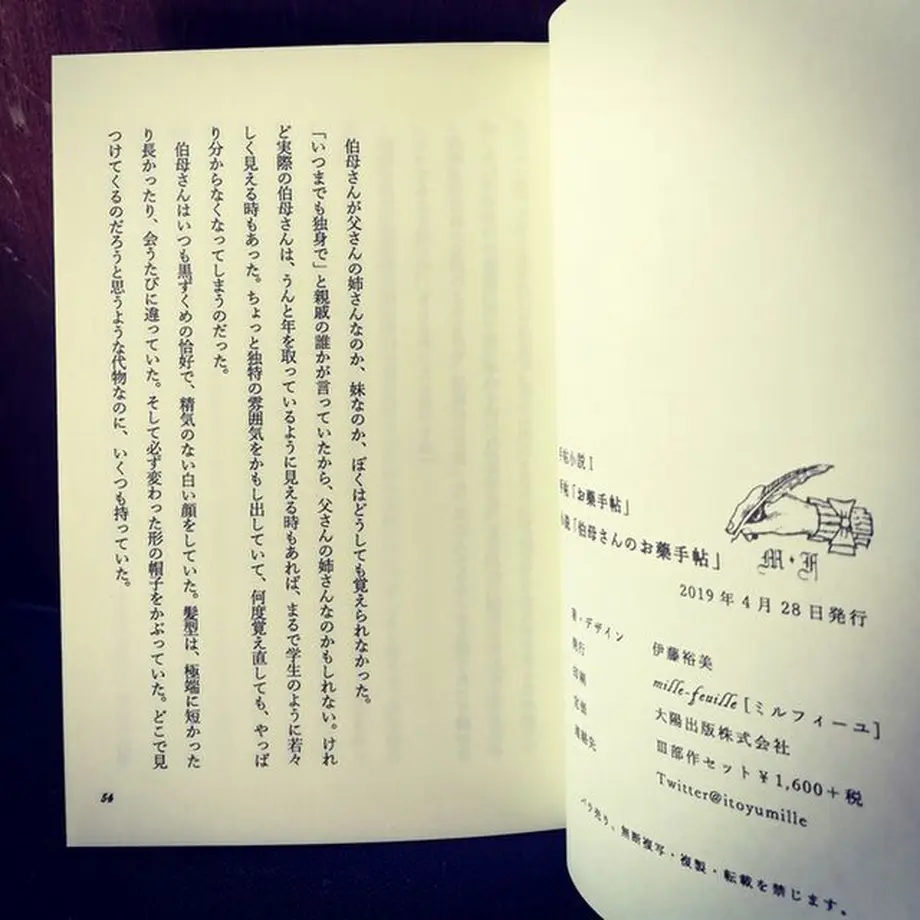 伯母さんが父さんの姉さんなのか、妹なのか、ぼくはどうしても覚えられなかった。
「いつまでも独身で」と親戚の誰かが言っていたから、父さんの姉さんなのかもしれない。けれ
ど実際の伯母さんは、うんと年を取っているように見える時もあれば、まるで学生のように若々
しく見える時もあった。ちょっと独特の雰囲気をかもし出していて、何度覚え直しても、やっぱ
り分からなくなってしまうのだった。
伯母さんはいつも黒ずくめの恰好で、精気のない白い顔をしていた。髪型は、極端に短かった
り長かったり、会うたびに違っていた。そして必ず変わった形の帽子をかぶっていた。どこで見
つけてくるのだろうと思うような代物なのに、いくつも持っていた。
54
手帖小説 I
手帖「お薬手帖」
小説「伯母さんのお薬手帖」
M・I
2019年4月28日発行
著・デザイン 伊藤裕美
発行 mille-feuille [ミルフィーユ]
印刷 大陽出版株式会社
定価 Ⅲ部作セット¥1,600+税
連絡先 Twitter@itoyumille
バラ売り、無断複写・複製・転載を禁じます。